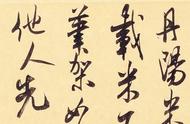 丹陽米
載米
筆架如
他人先